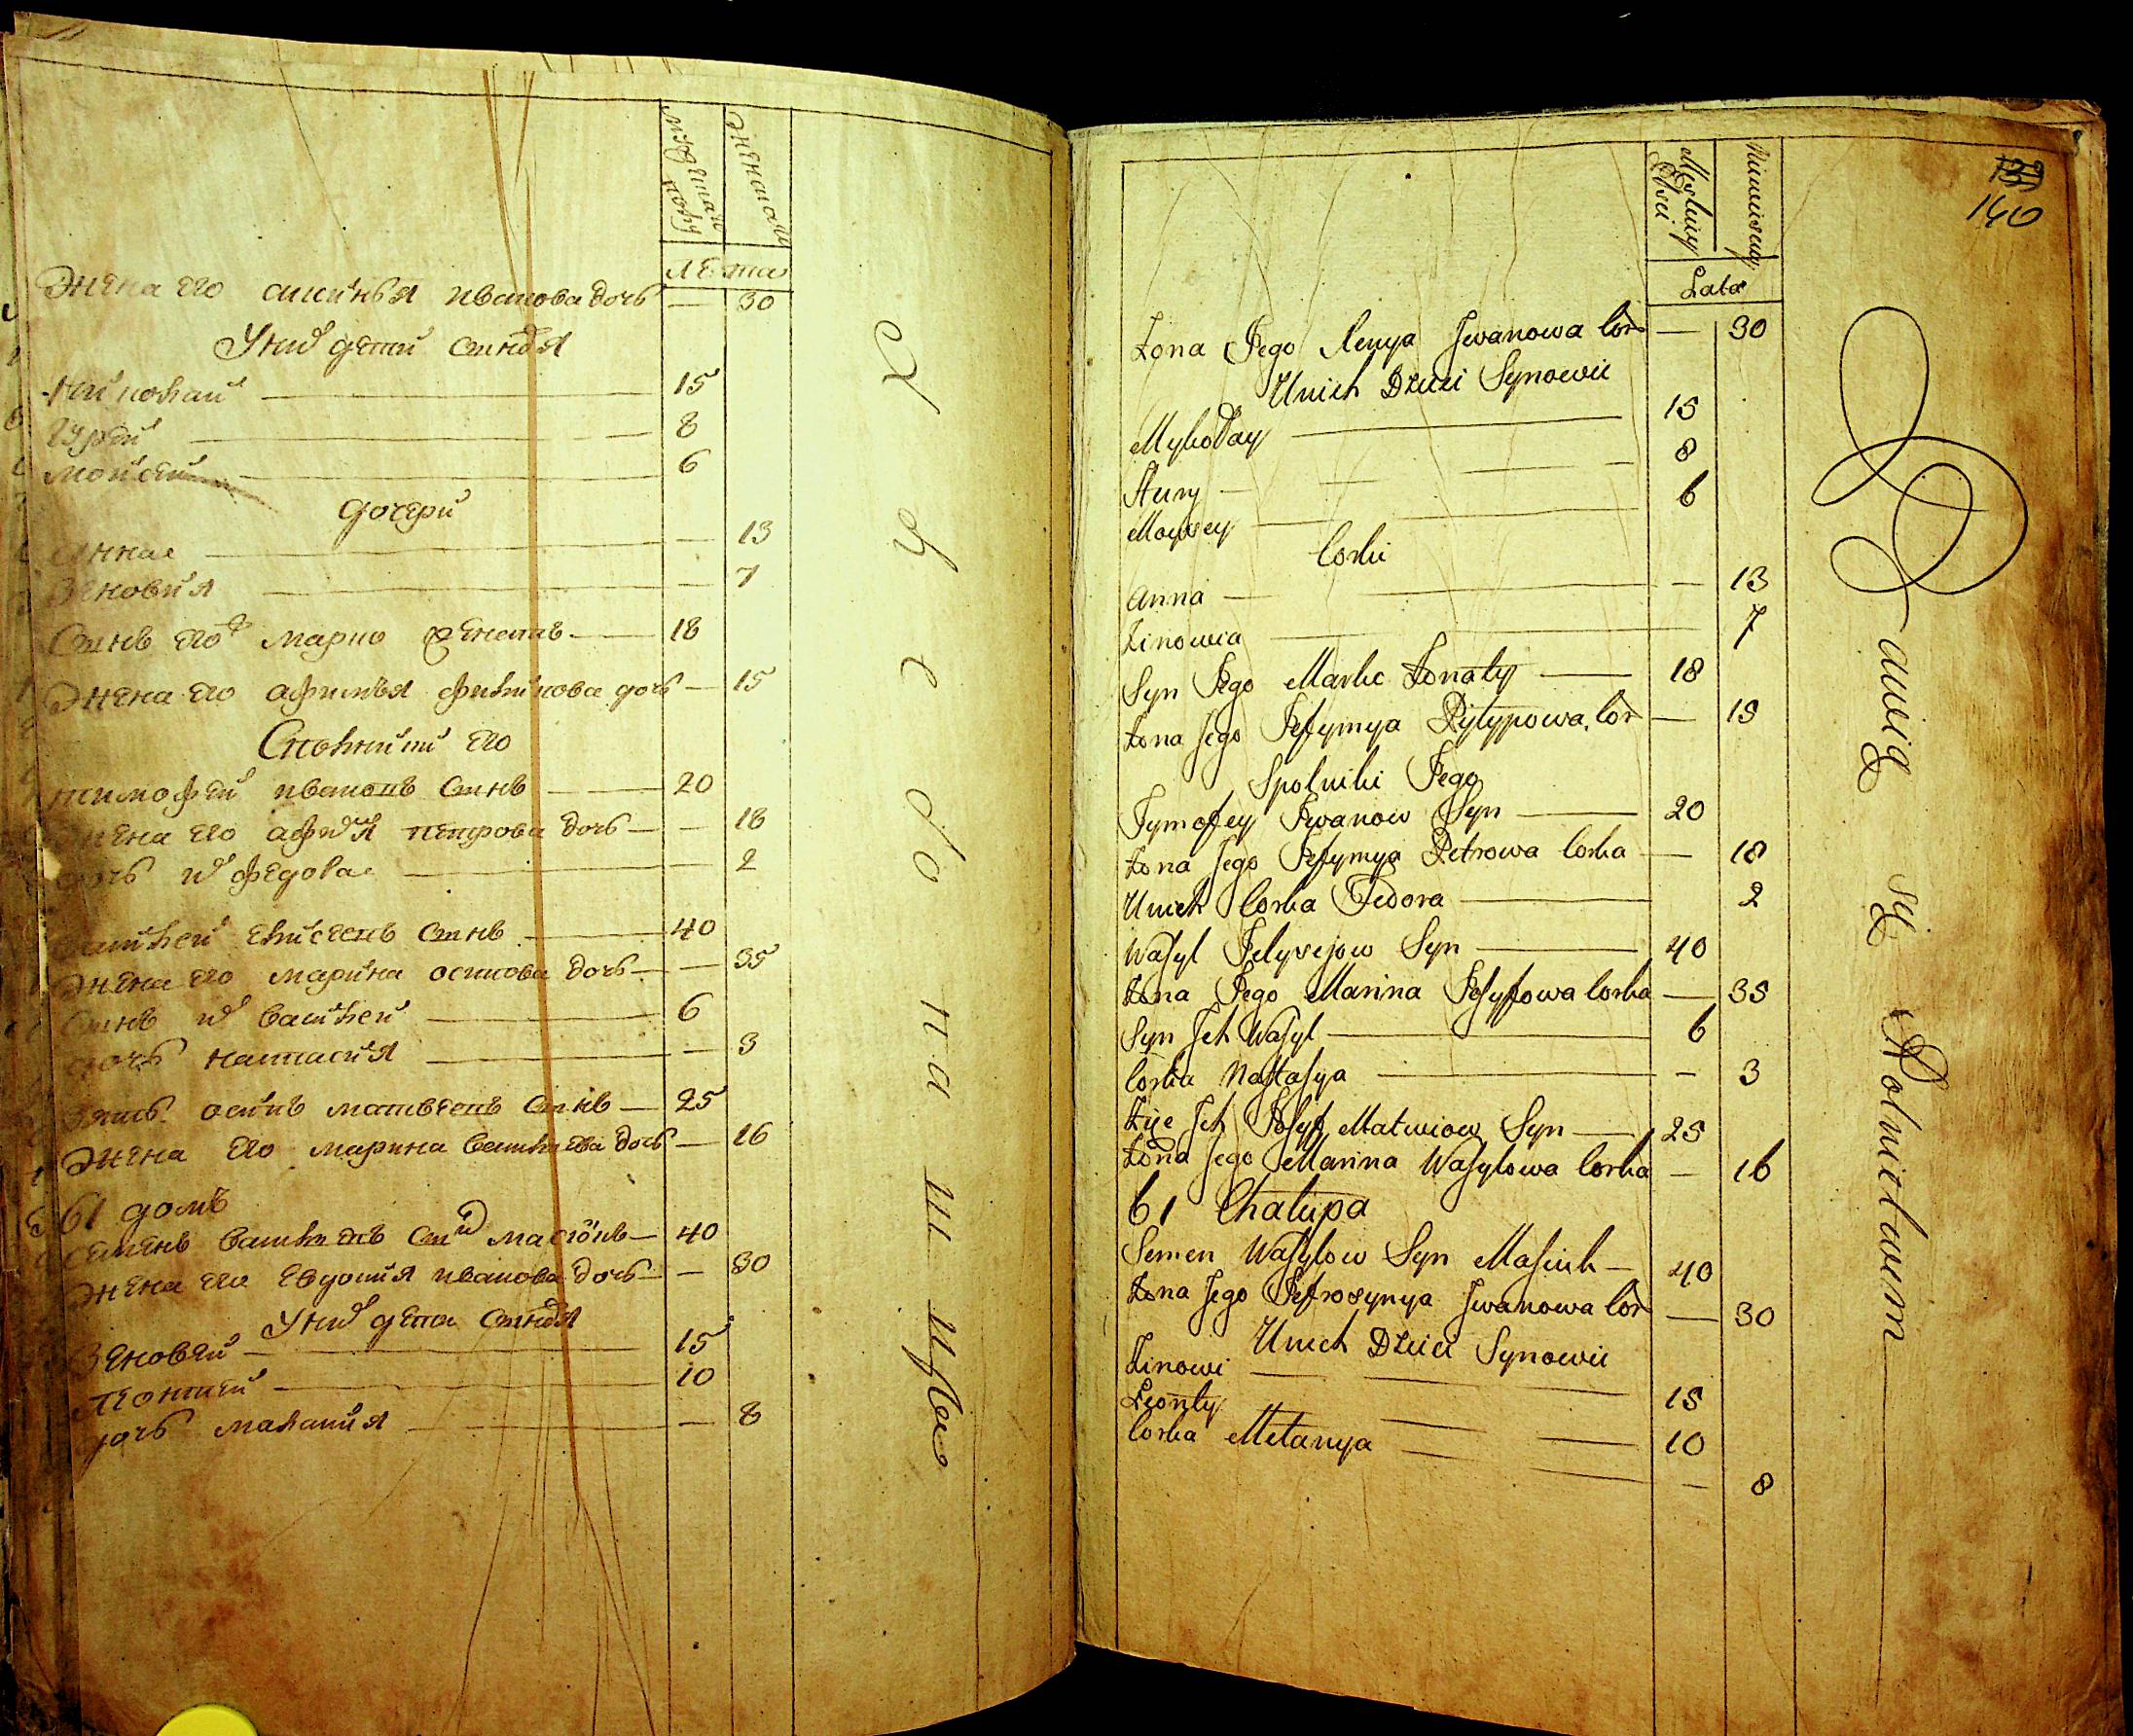 мужеска полу
женска
лета
жена его аксинья иванова дочь — 30
У них дети сыновья
николай — 15
гурей — 8
мойсей — 6
дочери
анна — 13
зеновия — 7
Сынъ его марко женатъ — 18
жена его афимья филипова дочь — 15
Спольники его
тимофей ивановъ сынъ — 20
жена его афимья петрова дочь — 18
дочь их федора — 2
василей елисеевъ сынъ — 40
жена его марина осипова дочь — 35
сынъ их василей — 6
дочь настасия — 3
зять осипъ матвеевъ сынъ — 25
жена его марина васильева дочь — 16
61 домъ
семенъ васильевъ сын — 40
жена его евдокия иванова дочь — 30
У них дети сыновья
зеновей — 15
леонтей — 10
дочь малания — 8
139
140
Męskiey Płci
Niewieściey
Lata
Żona Jego Xenya Jwanowa Cór — 30
U nich Dzieci Synowie
Mykołay — 15
Hury — 8
Moysey — 6
Corki
Anna — 13
Zinowia — 7
Syn Jego Marko Żonaty — 18
Żona Jego Jefymya Pylypowa Cór — 15
Spolniki Jego
Tymofey Jwanow Syn — 20
Żona Jego Jefymya Petrowa Corka — 18
U nich Corka Fedora — 2
Wasyl Jelysejow Syn — 40
Żona Jego Marina Josyfowa Corka — 35
Syn Ich Wasyl — 6
Corka Nastasya — 3
Zięć Ich Josyf Matwiow Syn — 25
Żona Jego Marina Wasylowa Corka — 16
61 Chalupa
Semen Wasylow Syn Masiuk — 40
Żona Jego Jefrosynya Jwanowa Cor — 30
U nich Dzieci Synowie
Zinowi — 15
Leonty — 10
Corka Melanya — 8
Bawią się Rolnictwem